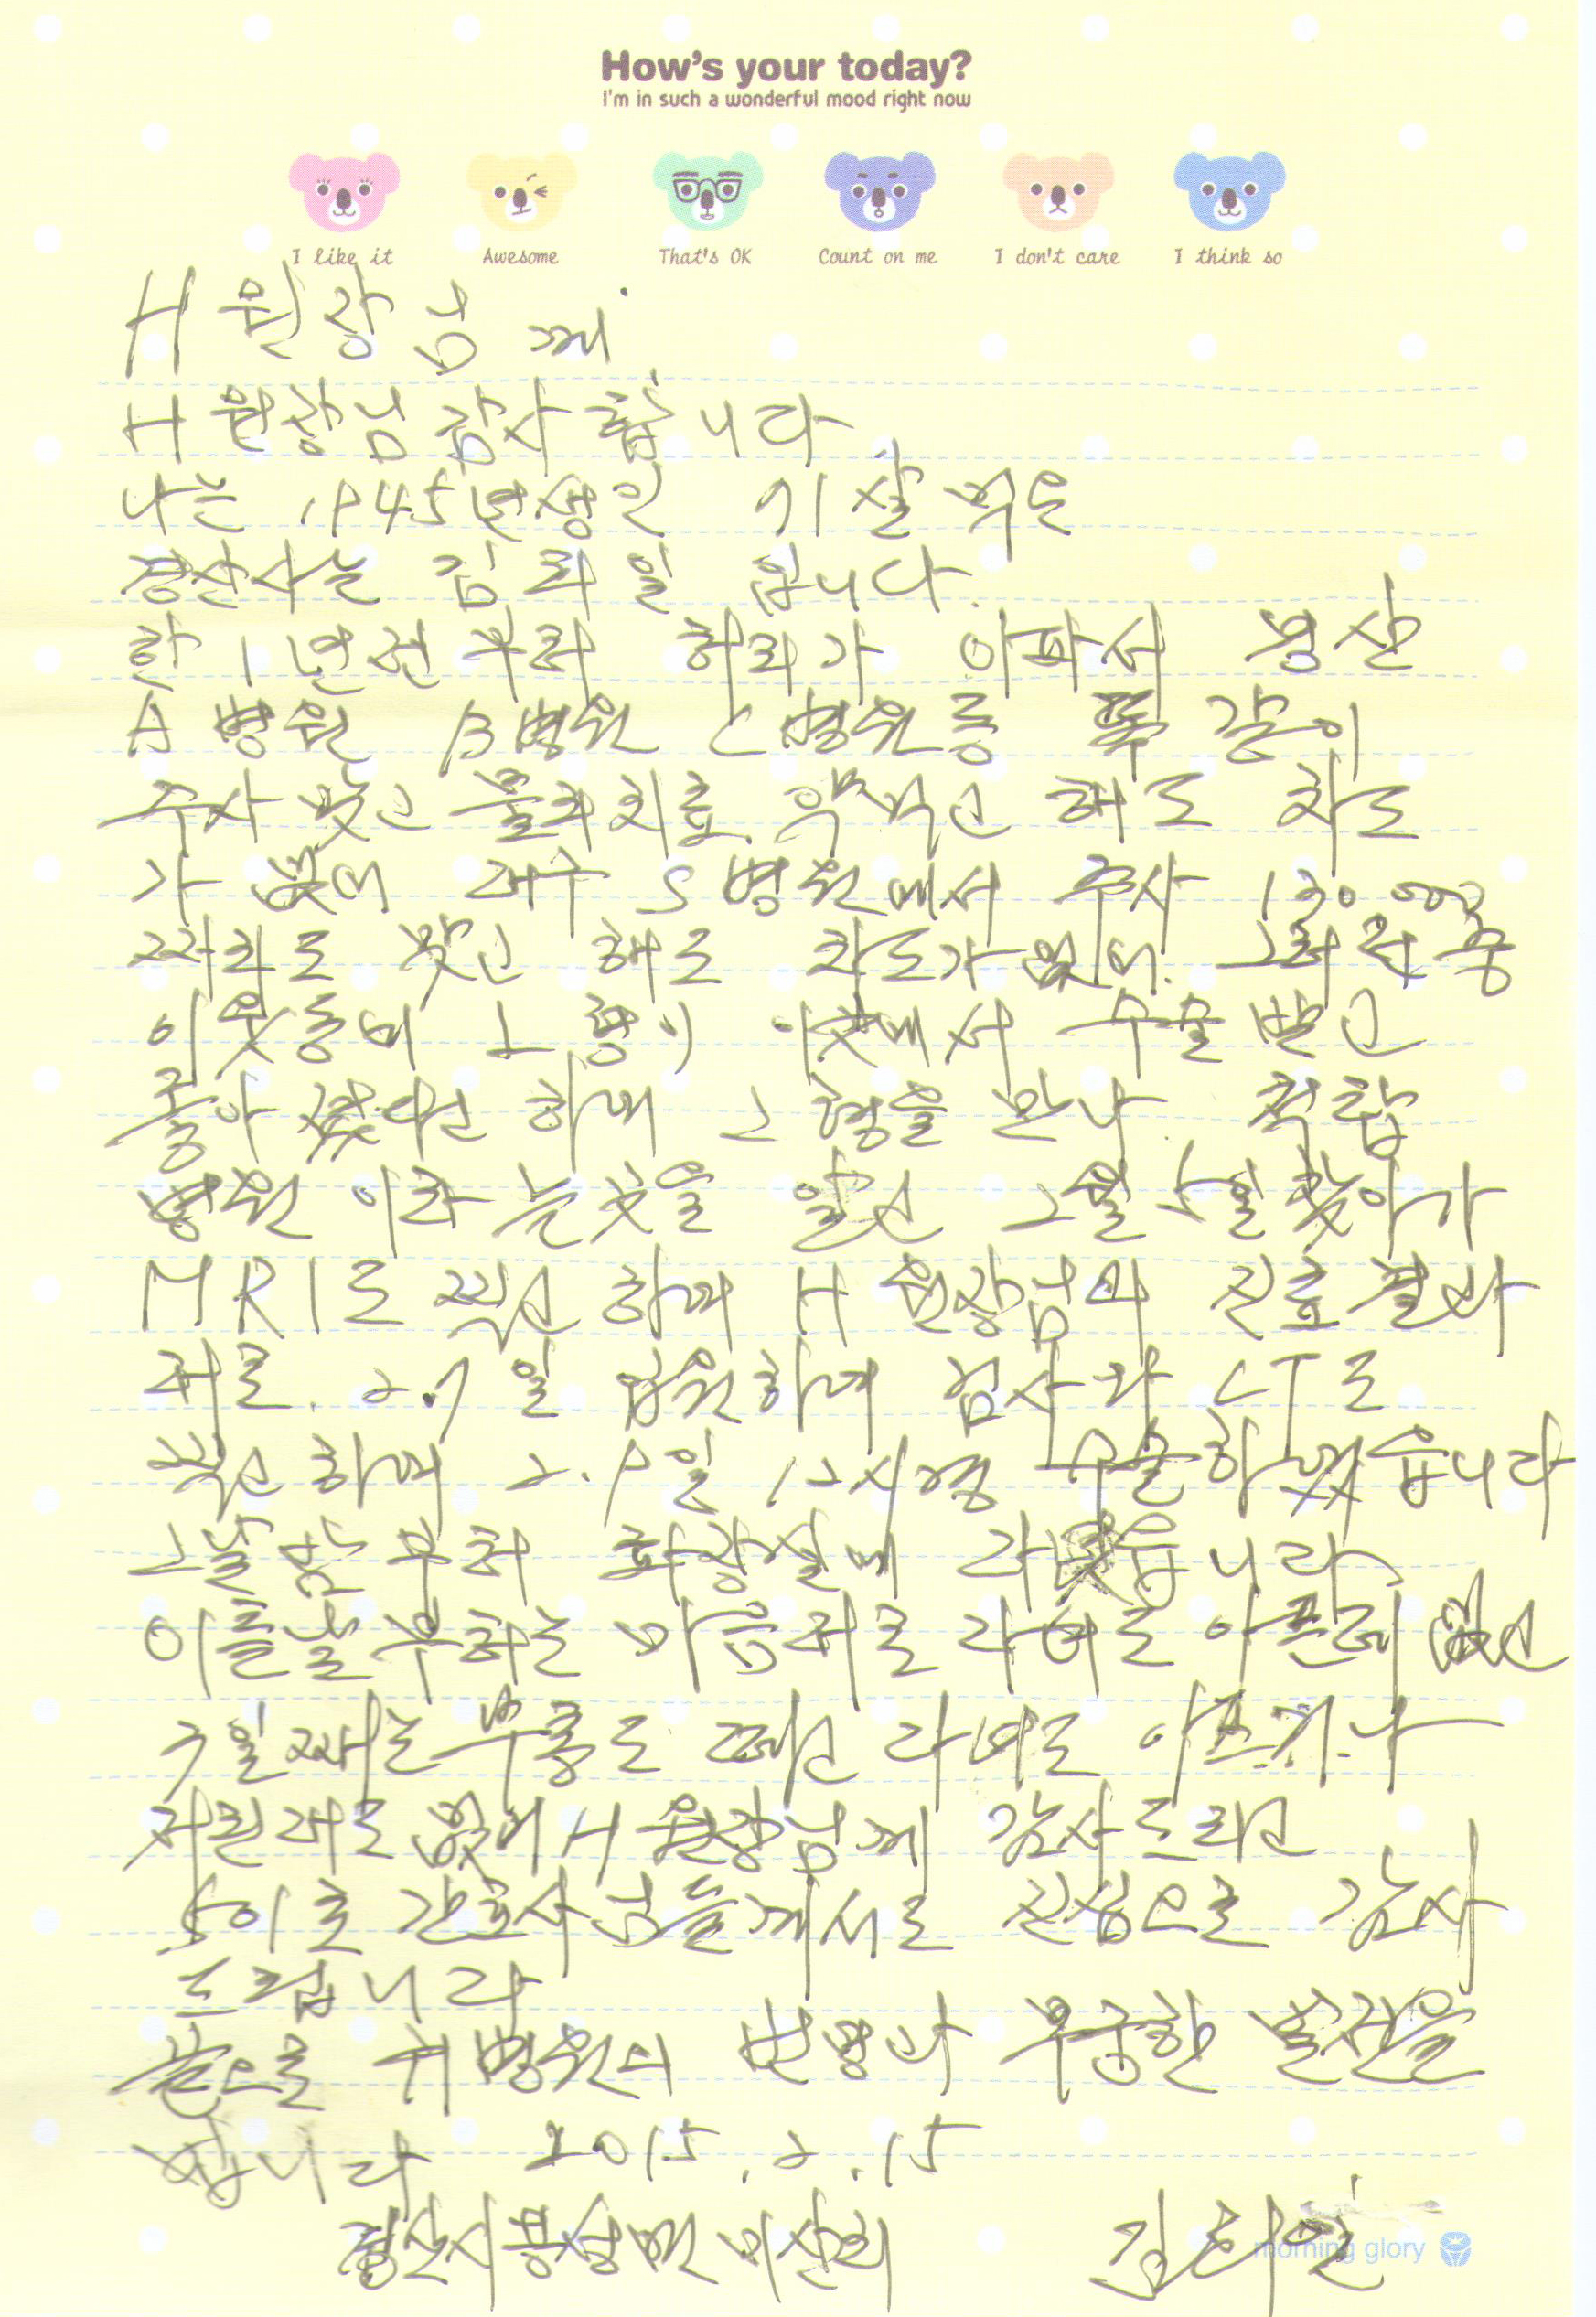 How's your today?
I'm in such a wonderful mood right now
I like it Awesome That's OK Count on me I don't care I think so
H 원장님께
H 원장님 감사합니다
나는 1945년생인 기살먹은
경산사는 김 일 입니다.
한 1년전부터 허리가 아파서 경산
A 병원 B병원 C병원등 똑같이
주사 맞고 물리치료 약먹고 해도 차도
가 없어 대구 S병원에서 주사 130,000
짜리도 맞고 해도 차도가 없어. 그러던 중
이웃동네 그 형이 이곳에서 수술받고
좋아졌다고 하며 그 형을 만나 척탑
병원 이라는곳을 알고 2월 5일 찾아가
MRI도 찍고 하며 H 원장님의 진료결과
대로. 2.7일 입원하여 검사와 CT도
찍고 하여 2.9일 12시경 수술하였습니다
그날밤부터 화장실에 다녔습니다
이틀날부터는 마음대로 다녀도 아픈데 없고
3일째는 무통도 떼고 다녀도 아프거나
저린데도 없어 H 원장님께 감사드리고
501호 간호사님들께서도 진심으로 감사
드립니다
끝으로 귀병원의 번영과 무궁한 발전을
빕니다 2015.2.15
경산시 용성면 미산리 김 일
morning glory